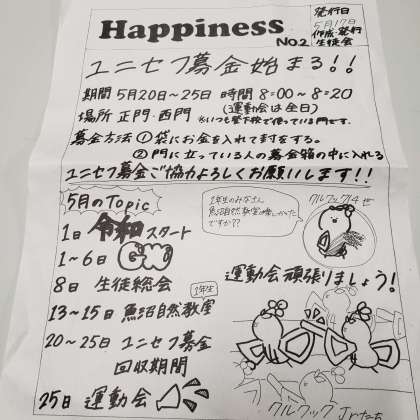 Happiness
No.2
発行日
5月17日
作成・発行
生徒会
ユニセフ募金始まる!!
期間 5月20日~25日 時間 8:00~8:20
(運動会は全日)
場所 正門・西門
※いつも登下校で使っている門です。
募金方法 ①袋にお金を入れて封をする。
②門に立っている人の募金箱の中に入れる
ユニセフ募金ご協力よろしくお願いします!!
5月のTopic
1日 令和スタート
1~6日 GW
8日 生徒総会
1年生
13~15日 魚沼自然教室
20~25日 ユニセフ募金
回収期間
25日 運動会
1年生のみなさん
魚沼自然教室は楽しかった
ですか??
クルワック14世
運動会頑張りましょう!
クルワックJrたち